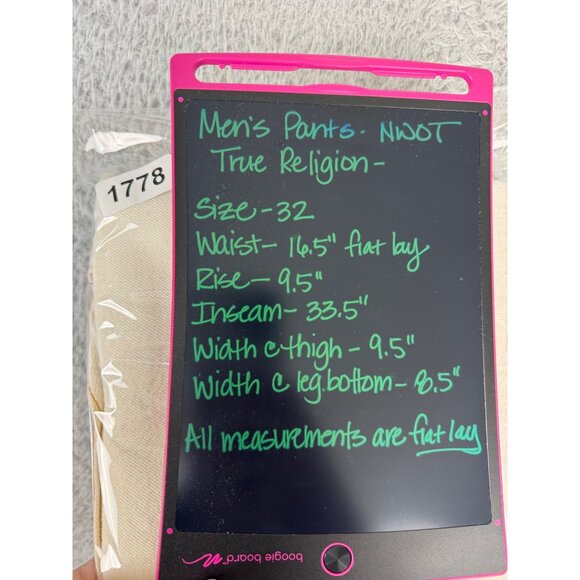 Men's Pants - NWOT
True Religion -
1778
Size - 32
Waist - 16.5" flat lay
Rise - 9.5"
Inseam - 33.5"
Width @ thigh - 9.5"
Width @ leg.bottom - 8.5"
All measurements are flat lay
boogie board